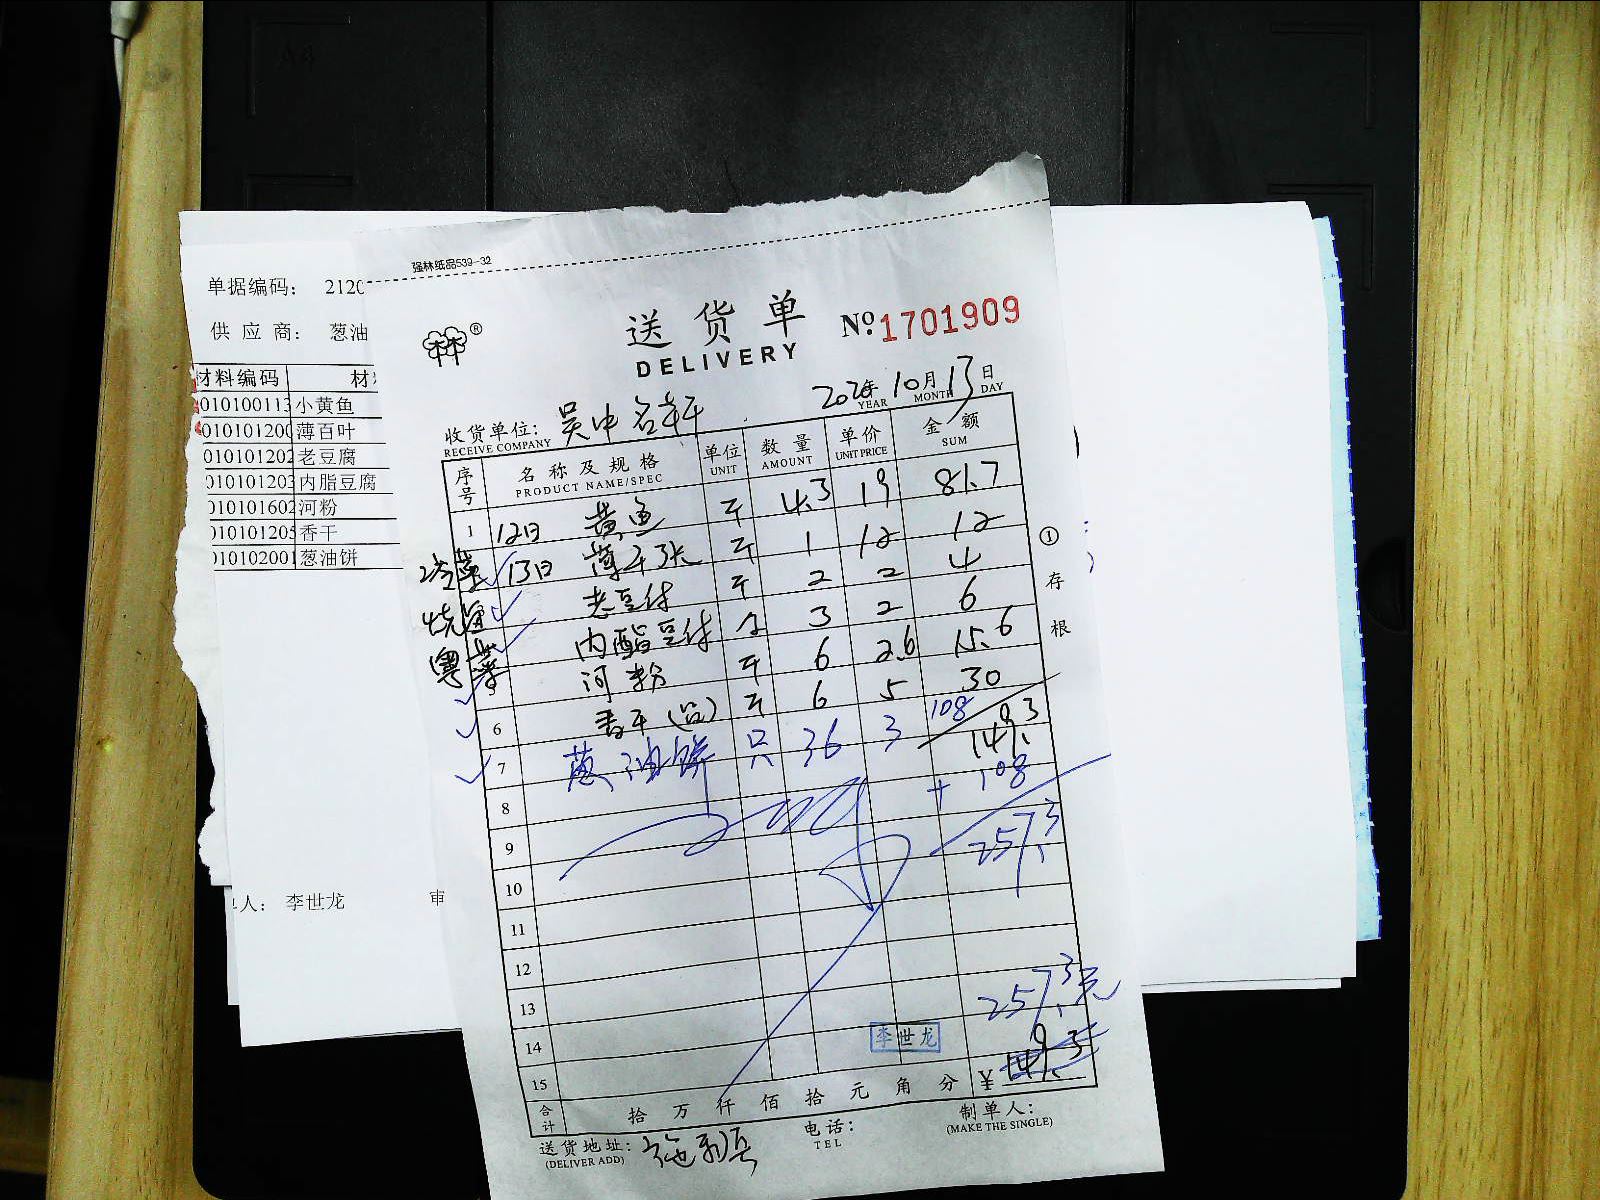 强林纸品539-32
单据编码： 2120
供 应 商： 葱油
材料编码 材
010100113 小黄鱼
010101200 薄百叶
010101202 老豆腐
010101203 内脂豆腐
010101602 河粉
010101205 香干
010102001 葱油饼
人： 李世龙 审
送货单 №1701909
DELIVERY
2020年 10月 13日
YEAR MONTH DAY
收货单位： 吴中名轩
RECEIVE COMPANY
序号 名称及规格 单位 数量 单价 金额
PRODUCT NAME/SPEC UNIT AMOUNT UNIT PRICE SUM
1 12日 黄鱼 斤 4.3 19 81.7
冷菜 13日 薄千张 斤 1 12 12
烧鱼 老豆付 斤 2 2 4
粤菜 内酯豆付 3 2 6
5 河粉 斤 6 2.6 15.6
6 香干 斤 6 5 30
7 葱油饼 只 36 3 108
149.3
8 + 108
9 257.3
10
11
12
13 257.3元
14 李世龙
15 149.3
合计 拾 万 仟 佰 拾 元 角 分 ¥
送货地址： 电话： 制单人：
(DELIVER ADD) TEL (MAKE THE SINGLE)
① 存根